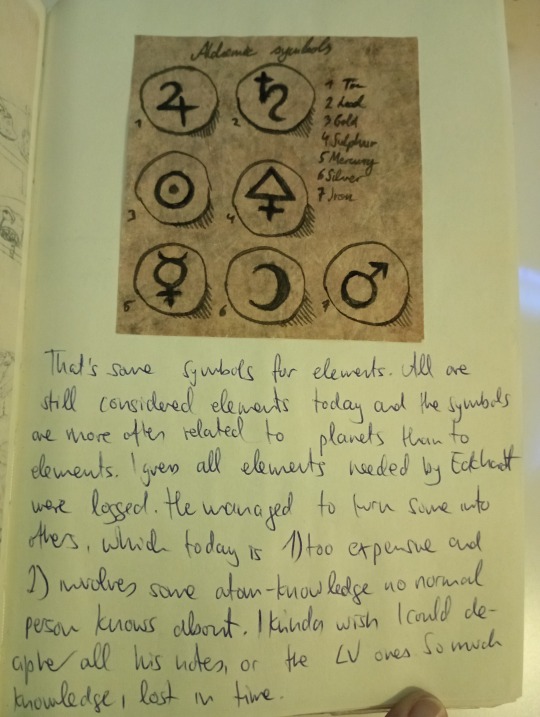 Alchemic symbols
1 Tin
2 Lead
3 Gold
4 Sulphur
5 Mercury
6 Silver
7 Iron
1
2
3
4
5
6
7
That's some symbols for elements. All are
still considered elements today and the symbols
are more often related to planets than to
elements. I guess all elements needed by Eckhardt
were logged. He managed to turn some into
others, which today is 1) too expensive and
2) involves some atom-knowledge no normal
person knows about. I kinda wish I could de-
cipher all his notes, or the LV ones. So much
knowledge, lost in time.